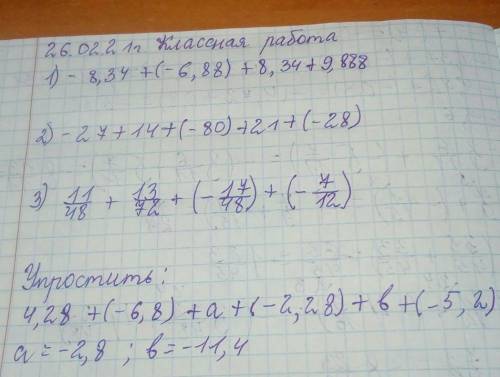 26.02.21г Классная работа
1) - 8,34 + (-6,88) + 8,34 + 9,888
2) - 27 + 14 + (-80) + 21 + (-28)
3) 11/48 + 13/72 + (-17/48) + (-7/12)
Упростить:
4,28 + (-6,8) + a + (-2,28) + в + (-5,2)
a = -2,8 ; в = -11,4